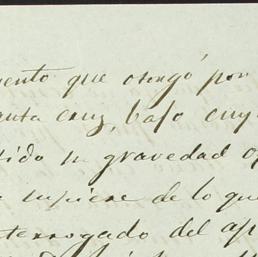 mento que otorgó por
anta cruz, bajo cuy
tido su gravedad
supiese de lo que
terrogado del ap